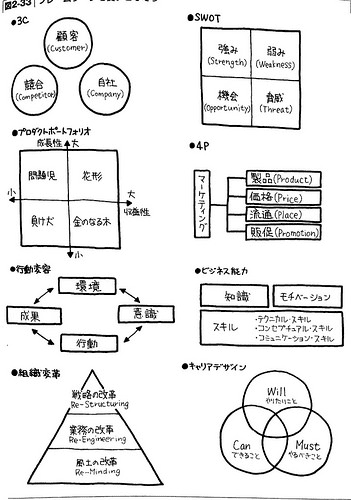 図2-33
●3C
顧客
(Customer)
競合
(Competitor)
自社
(Company)
●SWOT
強み
(Strength)
弱み
(Weakness)
機会
(Opportunity)
脅威
(Threat)
●プロダクトポートフォリオ
成長性 大
問題児
花形
小
大
収益性
負け犬
金のなる木
小
●4P
マーケティング
製品(Product)
価格(Price)
流通(Place)
販促(Promotion)
●行動変容
環境
成果
意識
行動
●ビジネス能力
知識
モチベーション
スキル
・テクニカル・スキル
・コンセプチュアル・スキル
・コミュニケーション・スキル
●組織変革
戦略の改革
Re-Structuring
業務の改革
Re-Engineering
風土の改革
Re-Minding
●キャリアデザイン
Will
やりたいこと
Can
できること
Must
やるべきこと